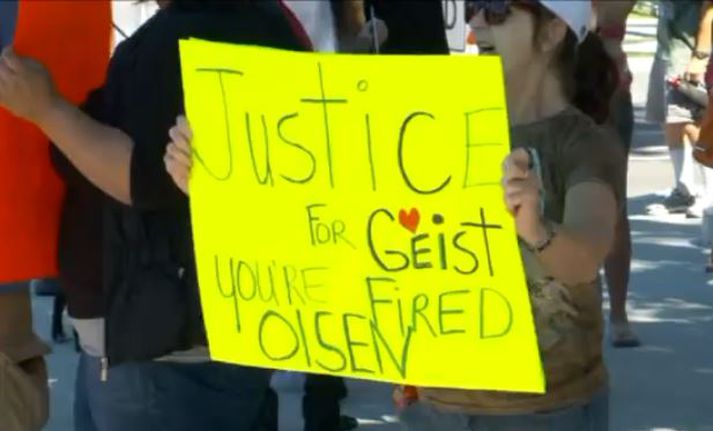 JUSTICE
FOR GEIST
YOU'RE FIRED
OLSEN